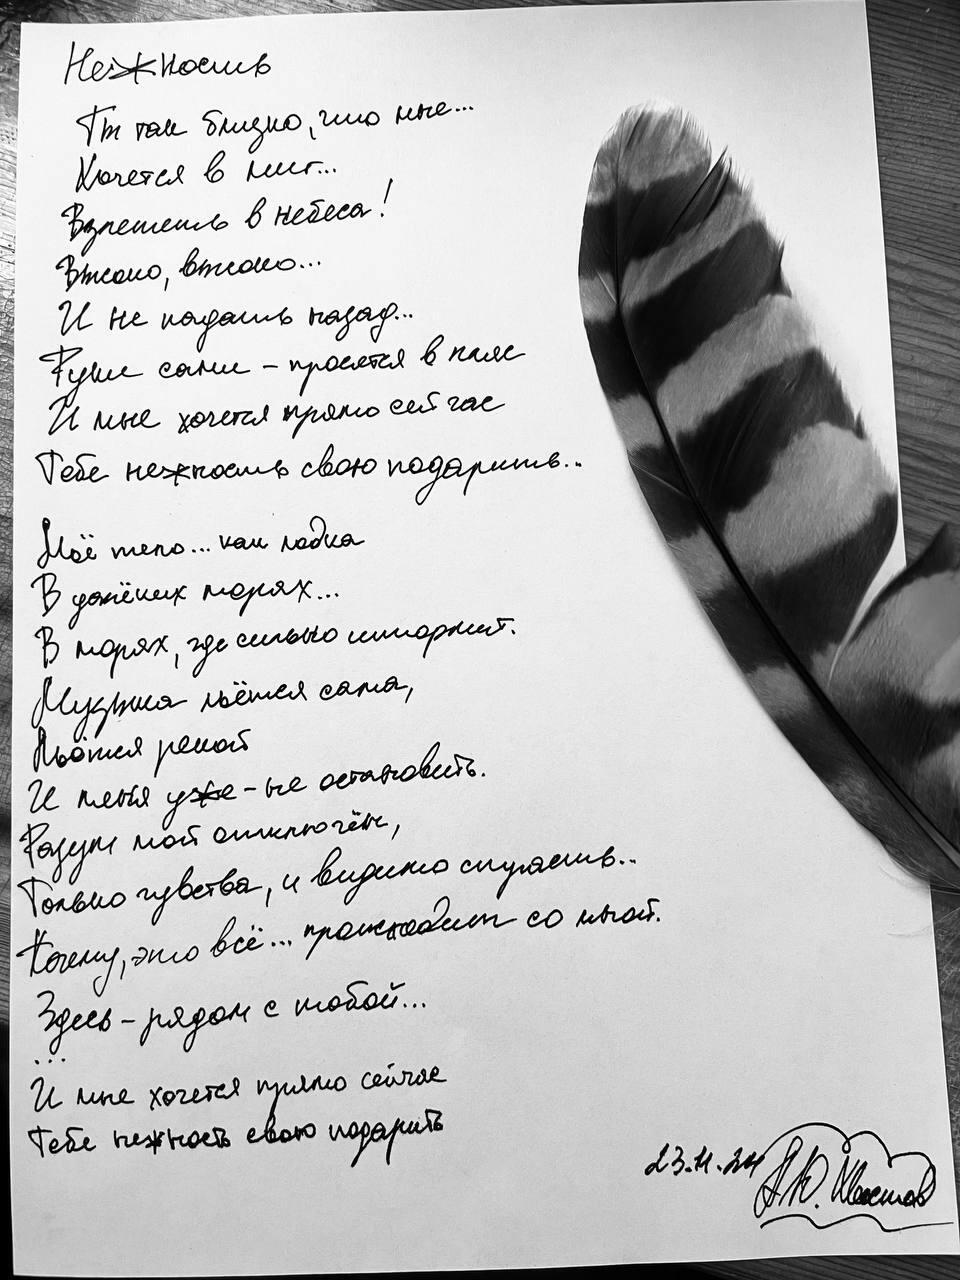 Нежность
Ты так близко, что мне...
Хочется в миг...
Взлететь в небеса!
Высоко, высоко...
И не падать назад...
Руки сами – просятся в пляс
И мне хочется прямо сейчас
Тебе нежность свою подарить...
Моё тело... как лодка
В далёких морях...
В морях, где сильно штормит.
Музыка льётся сама,
Льётся рекой
И меня уже – не остановить.
Разум мой отключён,
Только чувства, и видимо слушать..
Хочу, это всё... происходит со мной.
Здесь – рядом с тобой...
...
И мне хочется прямо сейчас
Тебе нежность свою подарить
23.11.24
А.Ю.